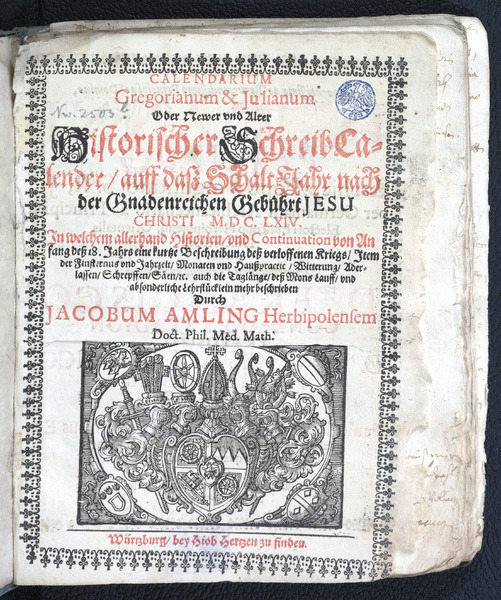 CALENDARIUM
Gregorianum & Julianum
Oder Newer vnd Alter
Historischer SchreibCa-
lender / auff daß Schalt Jahr nach
der Gnadenreichen Gebührt JESU
CHRISTI M.DC. LXIV.
In welchem allerhand Historien / vnd Continuation von An
fang deß 18. Jahrs eine kurtze Beschreibung deß verloffenen Kriegs / Item
der Finsternus vnd Jahrzeit / Monaten vnd Haußpractic / Witterung / Ader-
lassen / Schrepffen / Säen / ꝛc. auch die Taglänge / deß Mons Lauff / vnd
absonderliche Lehrstücklein mehr beschrieben
Durch
JACOBUM AMLING Herbipolensem
Doct. Phil. Med. Math:
Würtzburg / bey Hiob Hertzen zu finden.